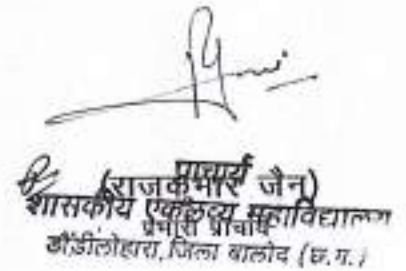 प्राचार्य
(राजकुमार जैन)
शासकीय एकलव्य महाविद्यालय
प्रभारी प्राचार्य
डौंडीलोहारा, जिला बालोद (छ.ग.)